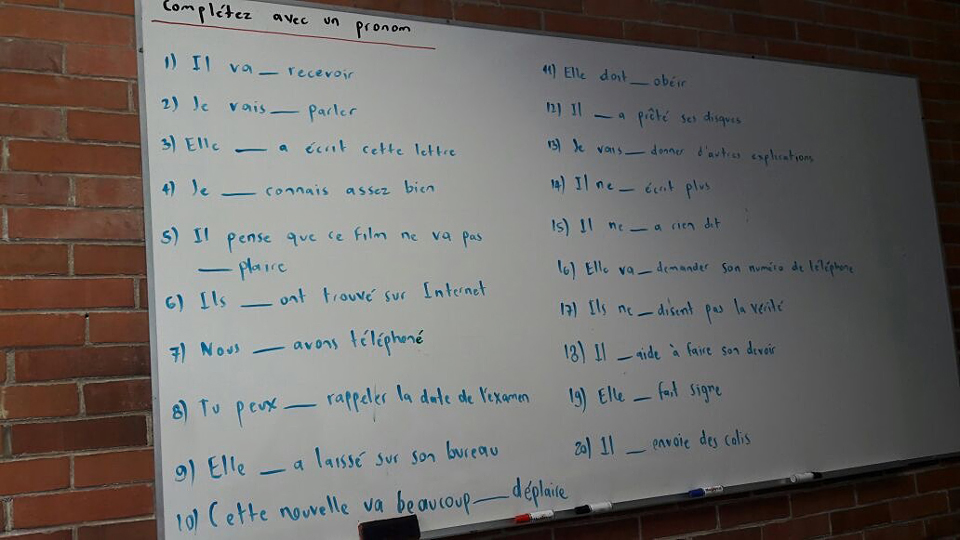 Complétez avec un pronom
1) Il va __ recevoir
2) Je vais __ parler
3) Elle __ a écrit cette lettre
4) Je __ connais assez bien
5) Il pense que ce film ne va pas
__ plaire
6) Ils __ ont trouvé sur Internet
7) Nous __ avons téléphoné
8) Tu peux __ rappeler la date de l'examen
9) Elle __ a laissé sur son bureau
10) Cette nouvelle va beaucoup __ déplaire
11) Elle doit __ obéir
12) Il __ a prêté ses disques
13) Je vais __ donner d'autres explications
14) Il ne __ écrit plus
15) Il ne __ a rien dit
16) Elle va __ demander son numéro de téléphone
17) Ils ne __ disent pas la vérité
18) Il __ aide à faire son devoir
19) Elle __ fait signe
20) Il __ envoie des colis